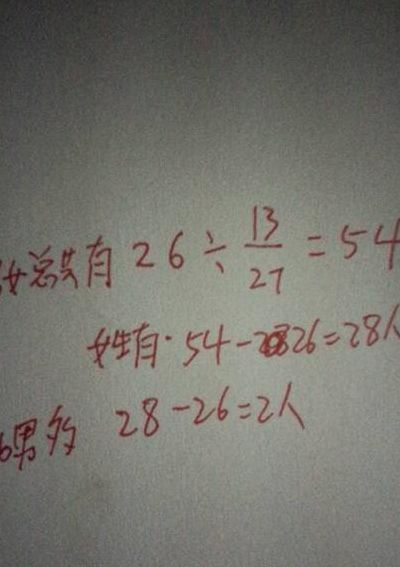 女总共有 26 ÷ 13/27 = 54
女生有·54-2026=28人
男多 28-26=2人